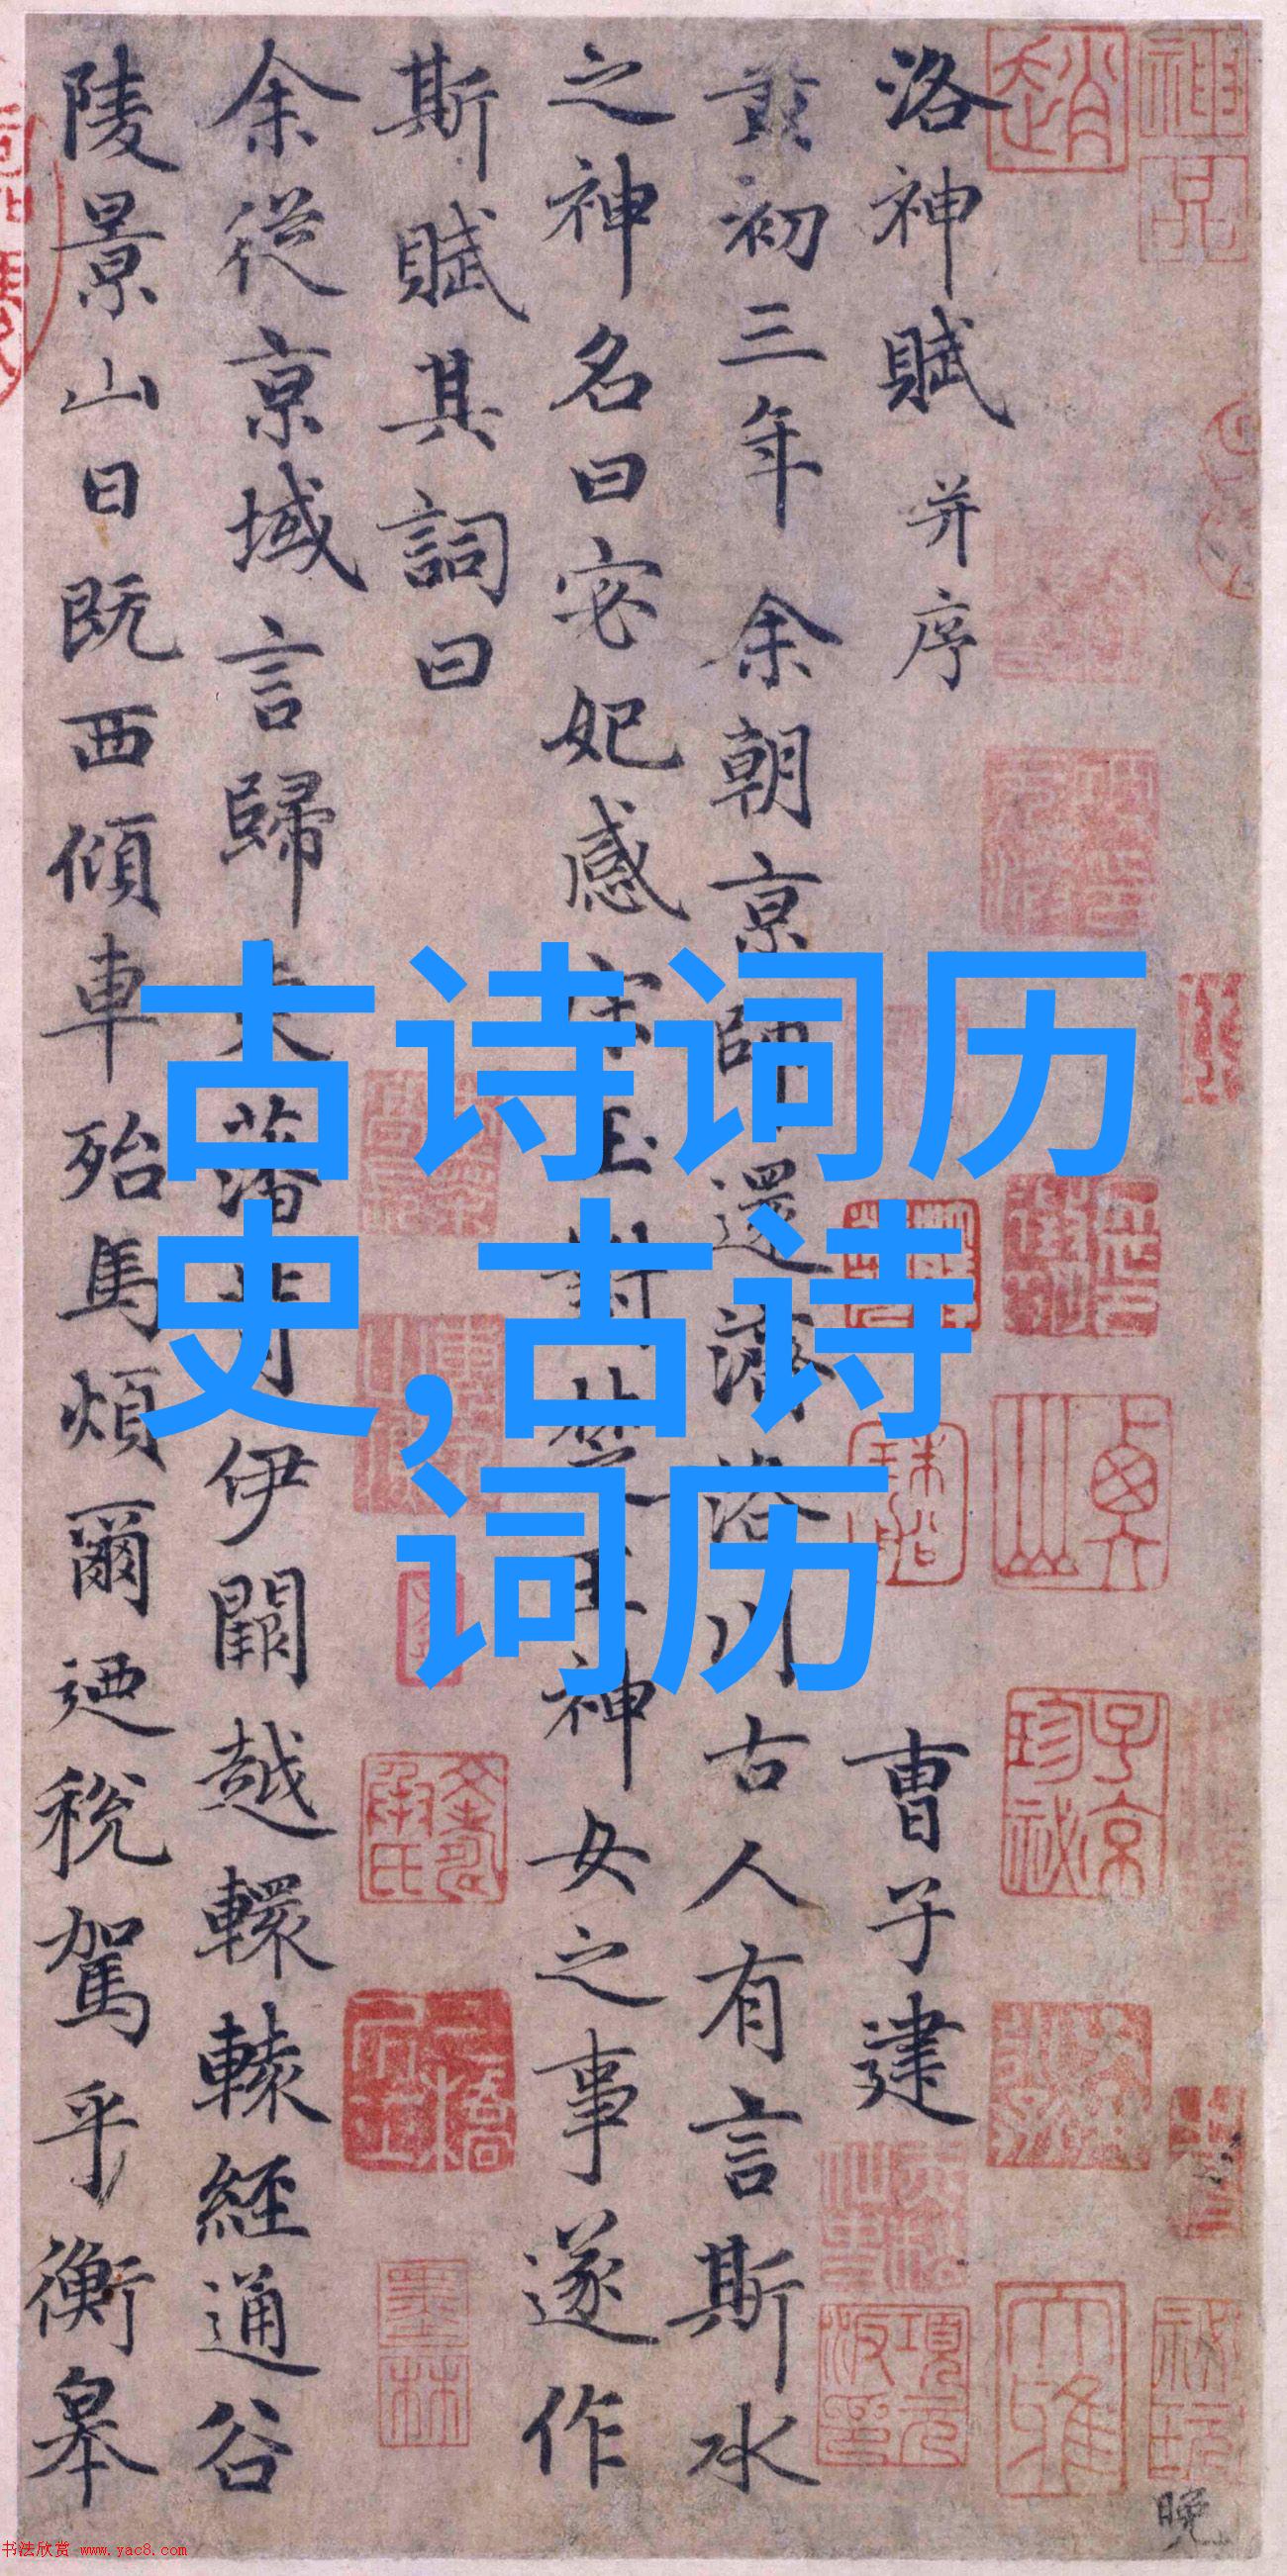 洛神賦 并序 曹子建
黃初三年余朝京師還濟洛川古人有言斯水
之神名曰宓妃感宋玉對楚王神女之事遂作
斯賦其詞曰
余從京域言歸東藩背伊闕越轘轅經通谷
陵景山日既西傾車殆馬煩爾迺稅駕乎衡皋
古诗词历
史,古诗
词历
趙
神品
墨林
晚
书法欣赏 www.yac8.com